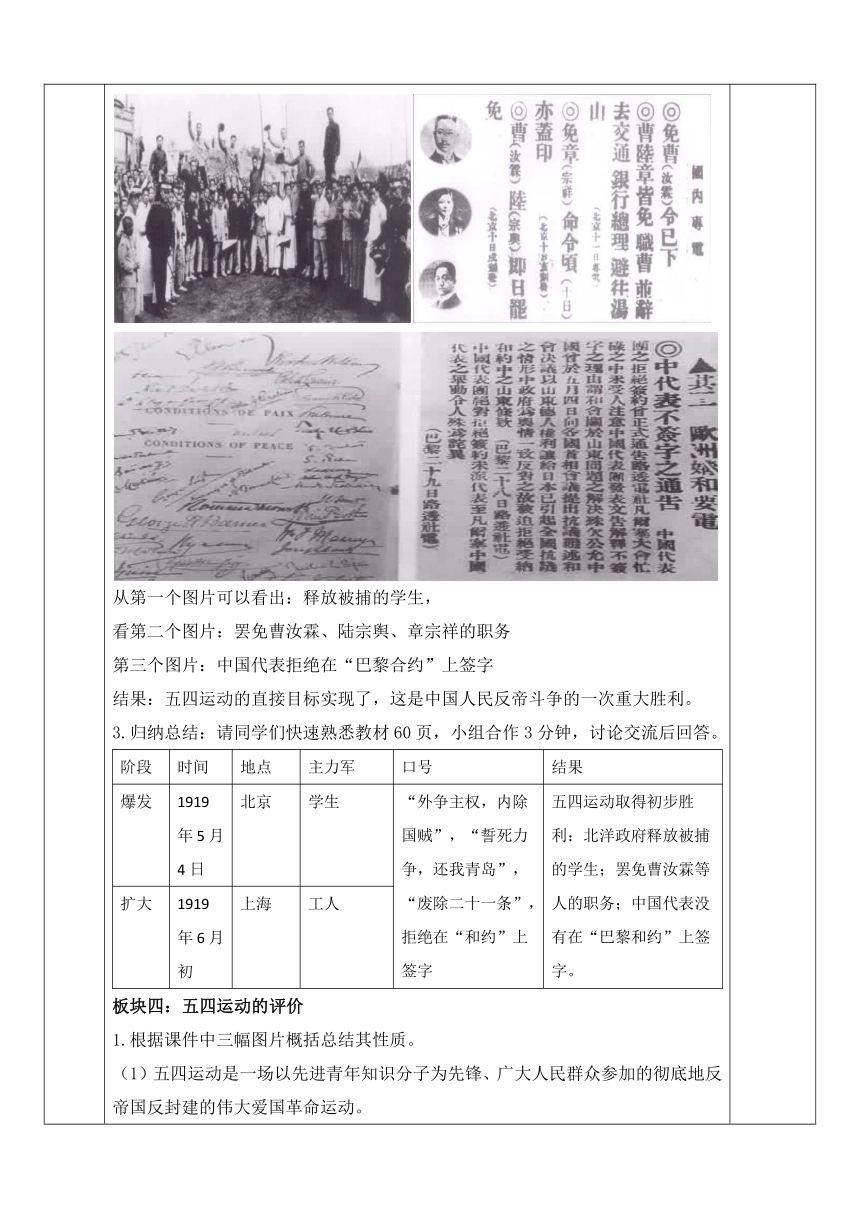 國内專電
◎免曹(汝霖)令已下
◎曹陸章皆免職曹並辭
去交通銀行總理避往湯
山
(北京十一日專電)
◎免章(宗祥)命令頃(十日)
亦蓋印
◎曹(汝霖)陸(宗輿)卽日罷
免
CONDITIONS DE PAIX
CONDITIONS OF PEACE
▲其三 歐洲媾和要電
◎中代表不簽字之通告 中國代表
團之拒絕簽約曾正式通告路透電社凡爾塞大會忙
碌之中未受人注意中國代表團發表文告解釋不簽
字之理由謂和會關於山東問題之解決殊欠公允中
國曾於五月四日向各國首相會議提出抗議
會決議以山東德人權利讓給日本已引起全國抗議
之情形中政府爲輿情一致反對之故被迫拒絕受納
和約中之山東條欵(巴黎二十八日路透社電)
中國代表團絕對拒絕簽約未派代表至凡爾塞中國
代表之舉動令人殊爲詫異
(巴黎二十九日路透社電)
从第一个图片可以看出：释放被捕的学生，
看第二个图片：罢免曹汝霖、陆宗舆、章宗祥的职务
第三个图片：中国代表拒绝在“巴黎合约”上签字
结果：五四运动的直接目标实现了，这是中国人民反帝斗争的一次重大胜利。
3.归纳总结：请同学们快速熟悉教材60页，小组合作3分钟，讨论交流后回答。
阶段 时间 地点 主力军 口号 结果
爆发
1919
年5月
4日
北京
学生
“外争主权，内除
国贼”，“誓死力
争，还我青岛”，
“废除二十一条”，
拒绝在“和约”上
签字
五四运动取得初步胜
利：北洋政府释放被捕
的学生；罢免曹汝霖等
人的职务；中国代表没
有在“巴黎和约”上签
字。
扩大
1919
年6月
初
上海
工人
板块四：五四运动的评价
1.根据课件中三幅图片概括总结其性质。
（1）五四运动是一场以先进青年知识分子为先锋、广大人民群众参加的彻底地反
帝国反封建的伟大爱国革命运动。